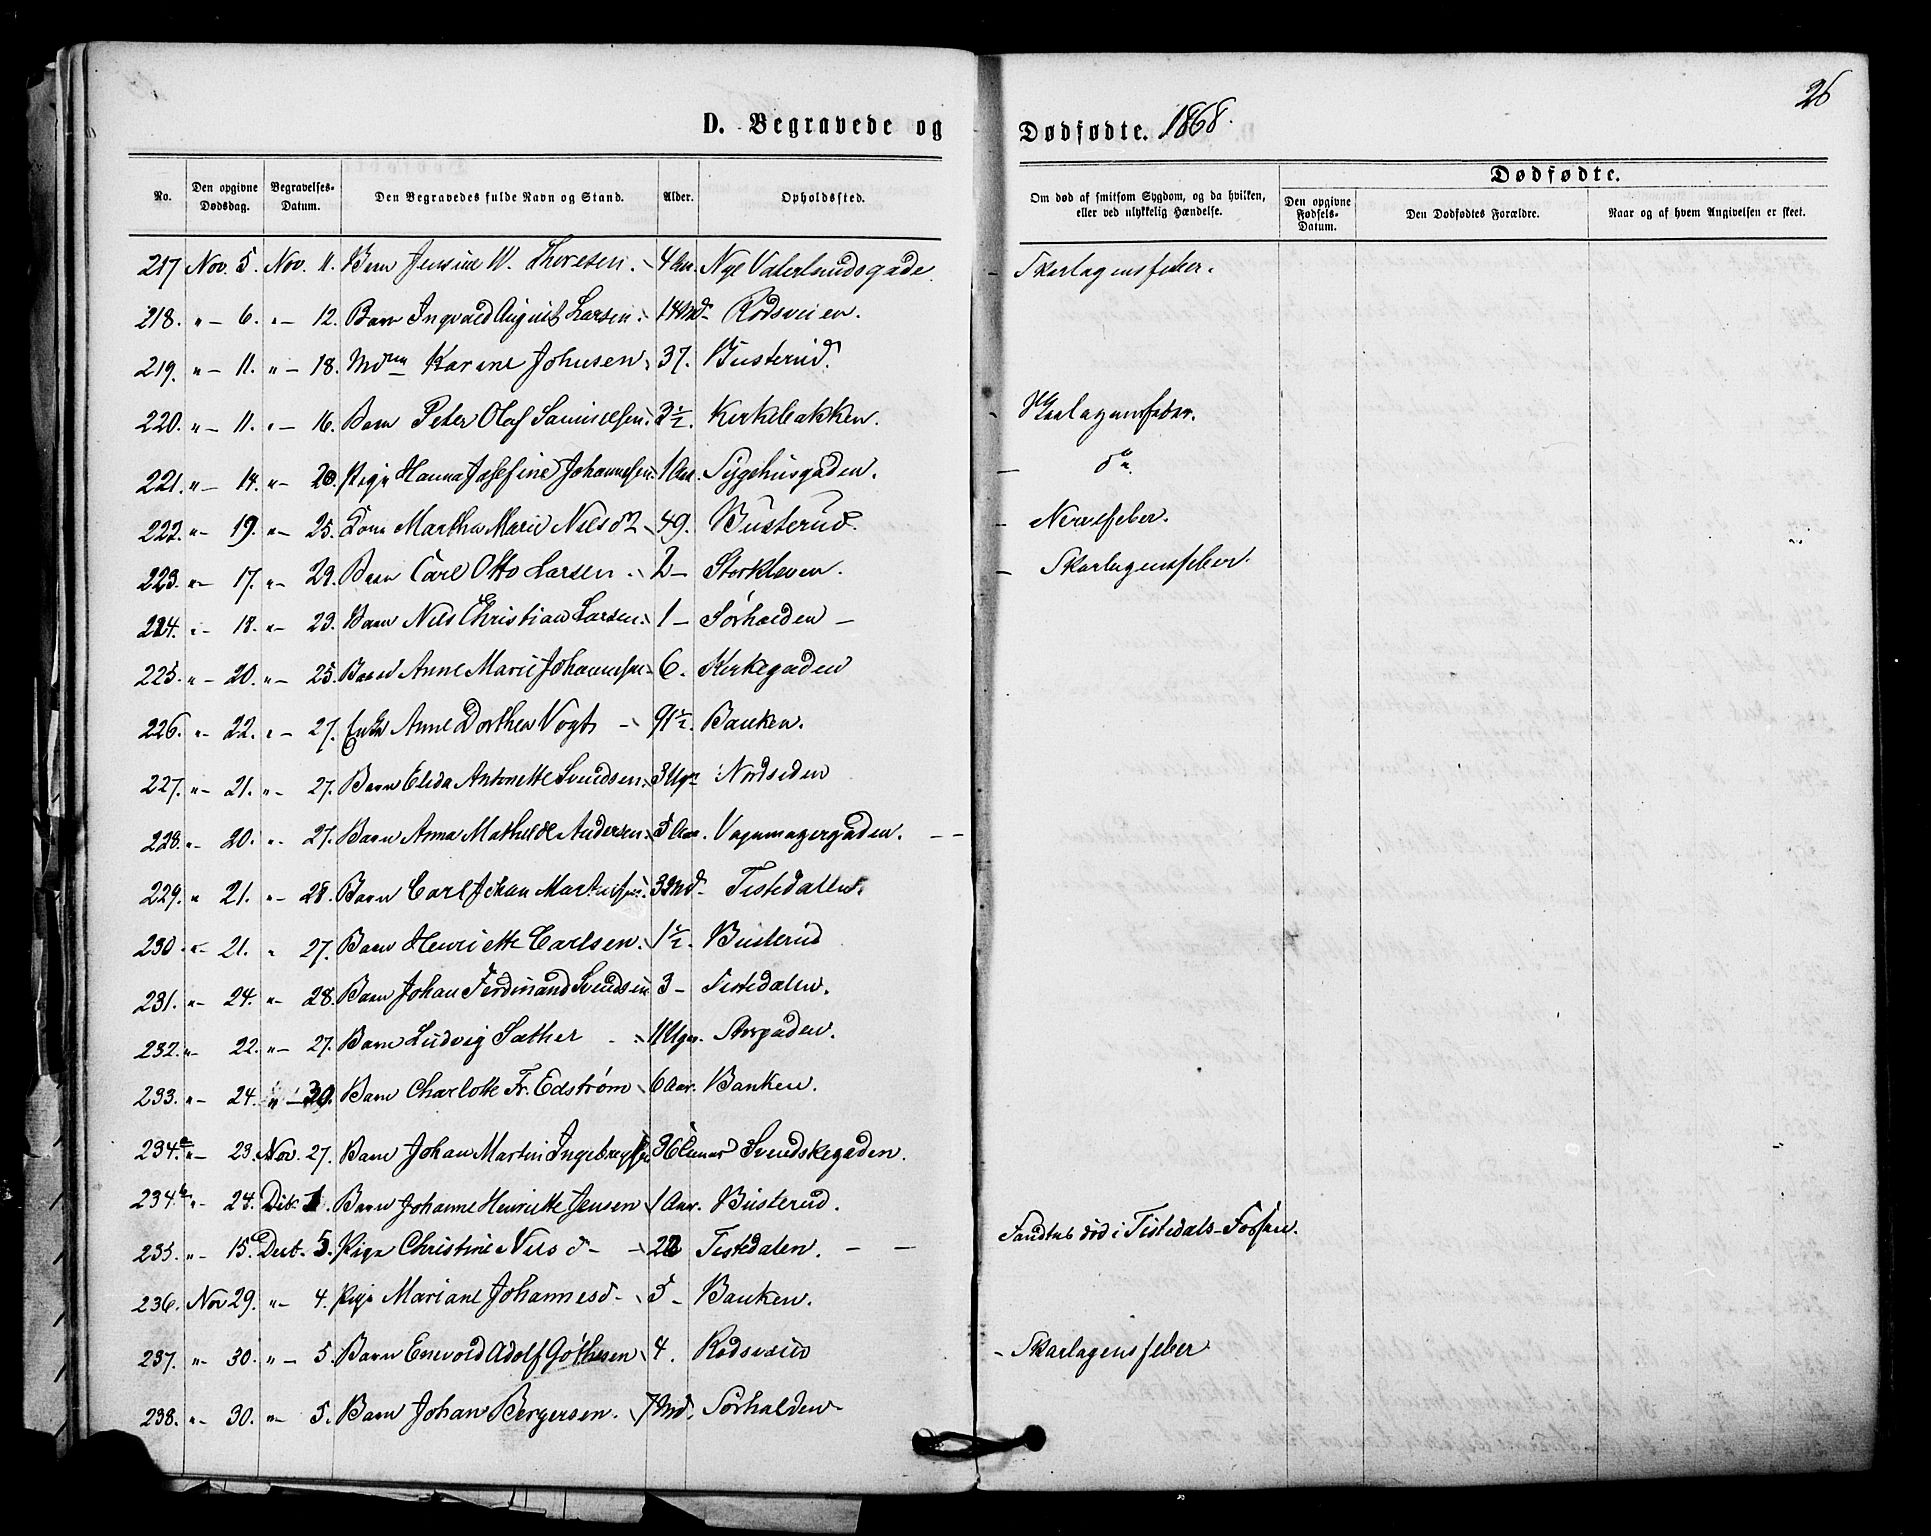 26
D. Begravede og Dødfødte. 1868.
No. Den opgivne Dødsdag. Begravelses-Datum. Den Begravedes fulde Navn og Stand. Alder. Opholdssted. Om død af smitsom Sygdom, og da hvilken, eller ved ulykkelig Hændelse. Dødfødte. Den opgivne Fødsels-Datum. Den Dødfødtes Forældre. Naar og af hvem Angivelsen er skeet.
217 Nov. 5. Nov. 11. Barn Jensine W. Thoresen. 4 Aar. Nye Vaterlandsgade. - Skarlagensfeber.
218. " - 6. " - 12. Barn Ingvald August Larsen. 14 Md. Rødsveien.
219. " - 11. " - 18. Mdm Karine Johnsen 37. Busterud.
220. " - 11. " - 16. Barn Peter Olaf Samuelsen. 3½. Kirkebakken. - Skarlagensfeber.
221. " - 14. " - 20. Pige Hanna Josefine Johannesen. 1 Aar. Sygehusgaden. - do.
222. " - 19. " - 25. Kone Martha Marie Nilsd. 49. Busterud. - Nervefeber.
223. " - 17. " - 29. Barn Carl Otto Larsen. 2 - Storkleven. - Skarlagensfeber.
224. " - 18. " - 23. Barn Nils Christian Larsen. 1 - Sørhalden -
225. " - 20. " - 25. Barn Anne Marie Johannesen 6. Kirkegaden
226. " - 22. " - 27. Enke Anne Dorthea Vogt - 91½. Banken.
227. " - 21. " - 27. Barn Elida Antonette Svendsen. 3 Ugr Nordsiden
228. " - 20. " - 27. Barn Anna Mathilde Andersen. 5 Aar. Vognmagergaden. - -
229. " 21. " - 28. Barn Carl Johan Martinsen. 3 Md - Tistedalen.
230. " - 21. " 27. Barn Henriette Carlsen. 1½. Busterud
231. " - 24. " - 28. Barn Johan Ferdinand Svendsen 3 - Tistedalen.
232. " - 22. " - 27. Barn Ludvig Sæther - 11 Uger. Storgaden.
233. " - 24. " - 30. Barn Charlotte Fr. Edstrøm 6 Aar. Banken.
234.a " - 23. Nov. 27. Barn Johan Martin Ingebregtsen Svendskegaden.
234.b " - 24. Dec. 1. Barn Johanne Henriette Jensen 1 Aar. Busterud.
235. " - 15. Decb. 5. Pige Christine Nilsd - - 22 Tistedalen. - - Fandtes død i Tistedals-Fossen.
236. Nov 29. " - 4. Pige Mariane Johannesd - 5 - Banken.
237. " - 30. " - 5. Barn Enevold Adolf Göthesen 4. Rødsveien - Skarlagensfeber
238. " - 30. " - 5. Barn Johan Bergersen. 7 Md. Sørhalden -